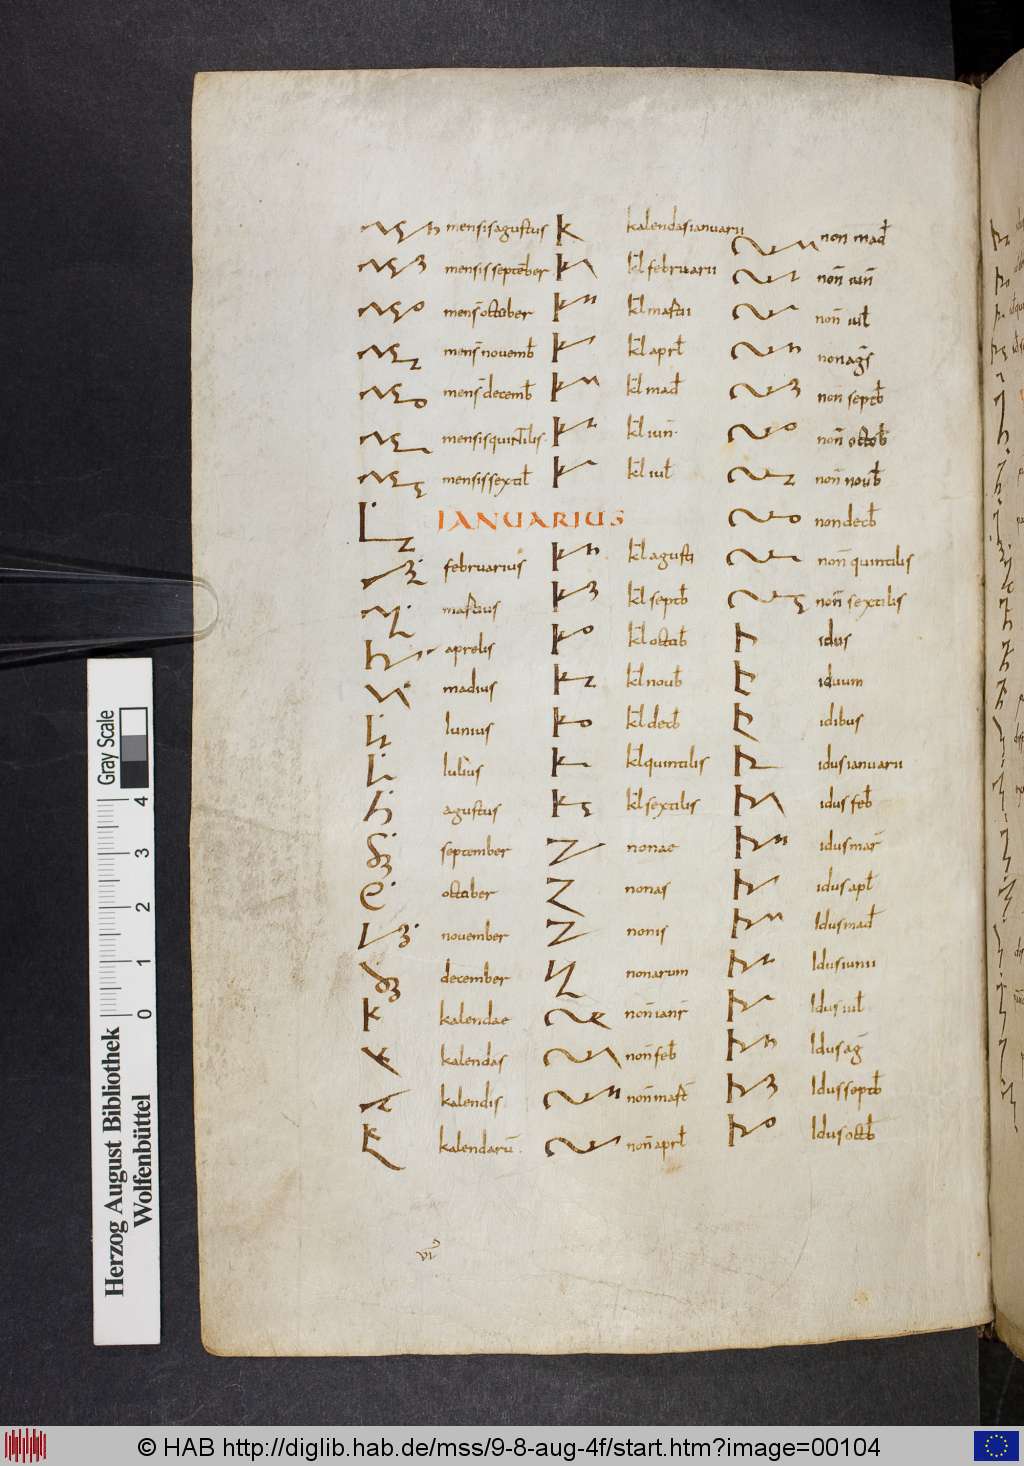 mensisagustus
mensisseptēber
mens̄october
mens̄novemb̄
mens̄decemb̄
mensisquintilis.
mensissextil̄
IANUARIUS
februarius
martius
aprelis
madius
Iunius
Iulius
agustus
september
october
november
december
kalendae
kalendas
kalendis
kalendarū.
kalendasianuarii
kl̄februarii
kl̄martii
kl̄aprl̄
kl̄mad̄
kl̄iun̄
kl̄iul̄
kl̄agusti
kl̄septb̄
kl̄octob̄
kl̄noub̄
kl̄decb̄
kl̄quintilis
kl̄sextilis
nonae
nonas
nonis
nonarum
non̄ianr̄
non̄feb̄
non̄mart̄
non̄aprl̄
non mad̄
non̄ iun̄
non̄ iul̄
non ags̄
non̄ septb̄
non̄ octob̄
non̄ noub̄
non decb̄
non̄ quintilis
non̄ sextilis
idus
iduum
idibus
idusianuarii
idusfeb̄
idusmar̄
idusapl̄
Idusmad̄
Idusiunii
Idusiul̄
Idusag̅
Idusseptb̄
Idusoctb̄
VI
Gray Scale
4
3
2
1
0
Herzog August Bibliothek
Wolfenbüttel
© HAB http://diglib.hab.de/mss/9-8-aug-4f/start.htm?image=00104